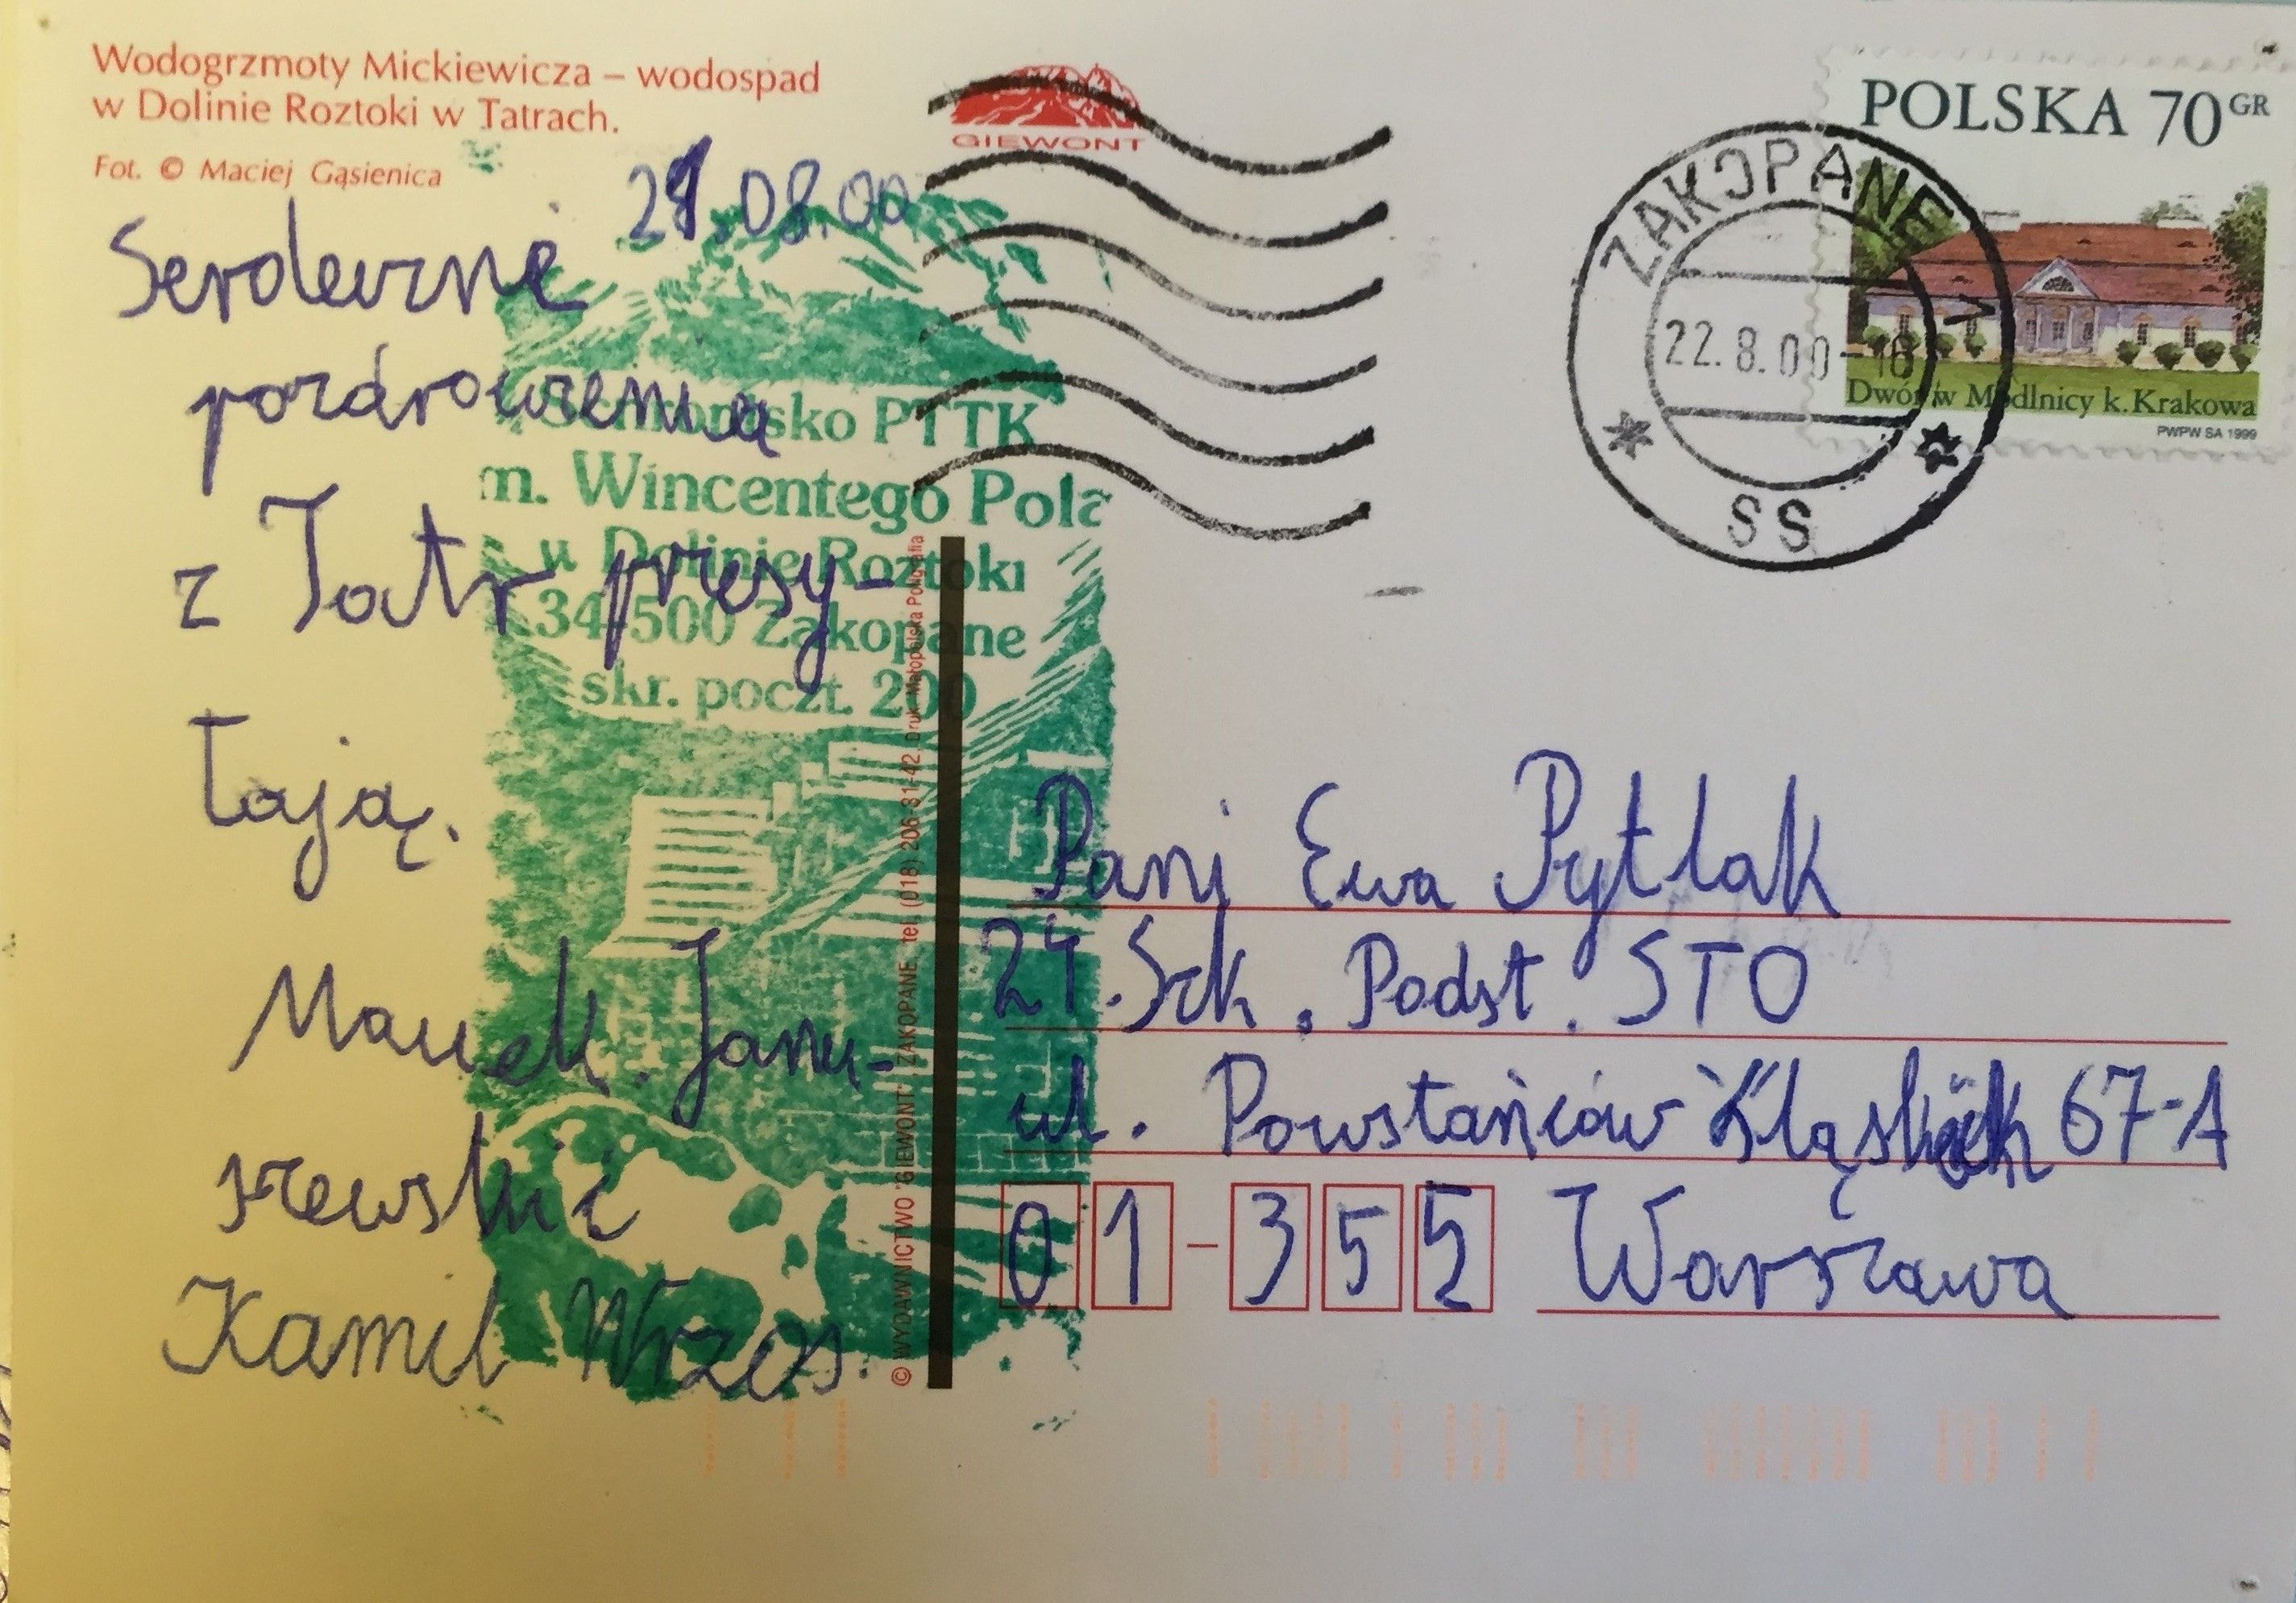 Wodogrzmoty Mickiewicza – wodospad
w Dolinie Roztoki w Tatrach.
Fot. © Maciej Gąsienica
21.08.00
Serdeczne
pozdrowienia
z Tatr przesy-
łają.
Maciek Janu-
szewski i
Kamil Wrzos.
Schronisko PTTK
m. Wincentego Pola
w Dolinie Roztoki
34-500 Zakopane
skr. poczt. 200
© WYDAWNICTWO "GIEWONT", ZAKOPANE tel. (018) 206-81-42, Druk: Małopolska Poligrafia
GIEWONT
ZAKOPANE
22.8.00-16
SS
POLSKA 70 GR
Dwór w Modlnicy k. Krakowa
PWPW SA 1999
Pani Ewa Pytlak
24. Szk. Podst. STO
ul. Powstańców Śląskich 67-A
01-355 Warszawa